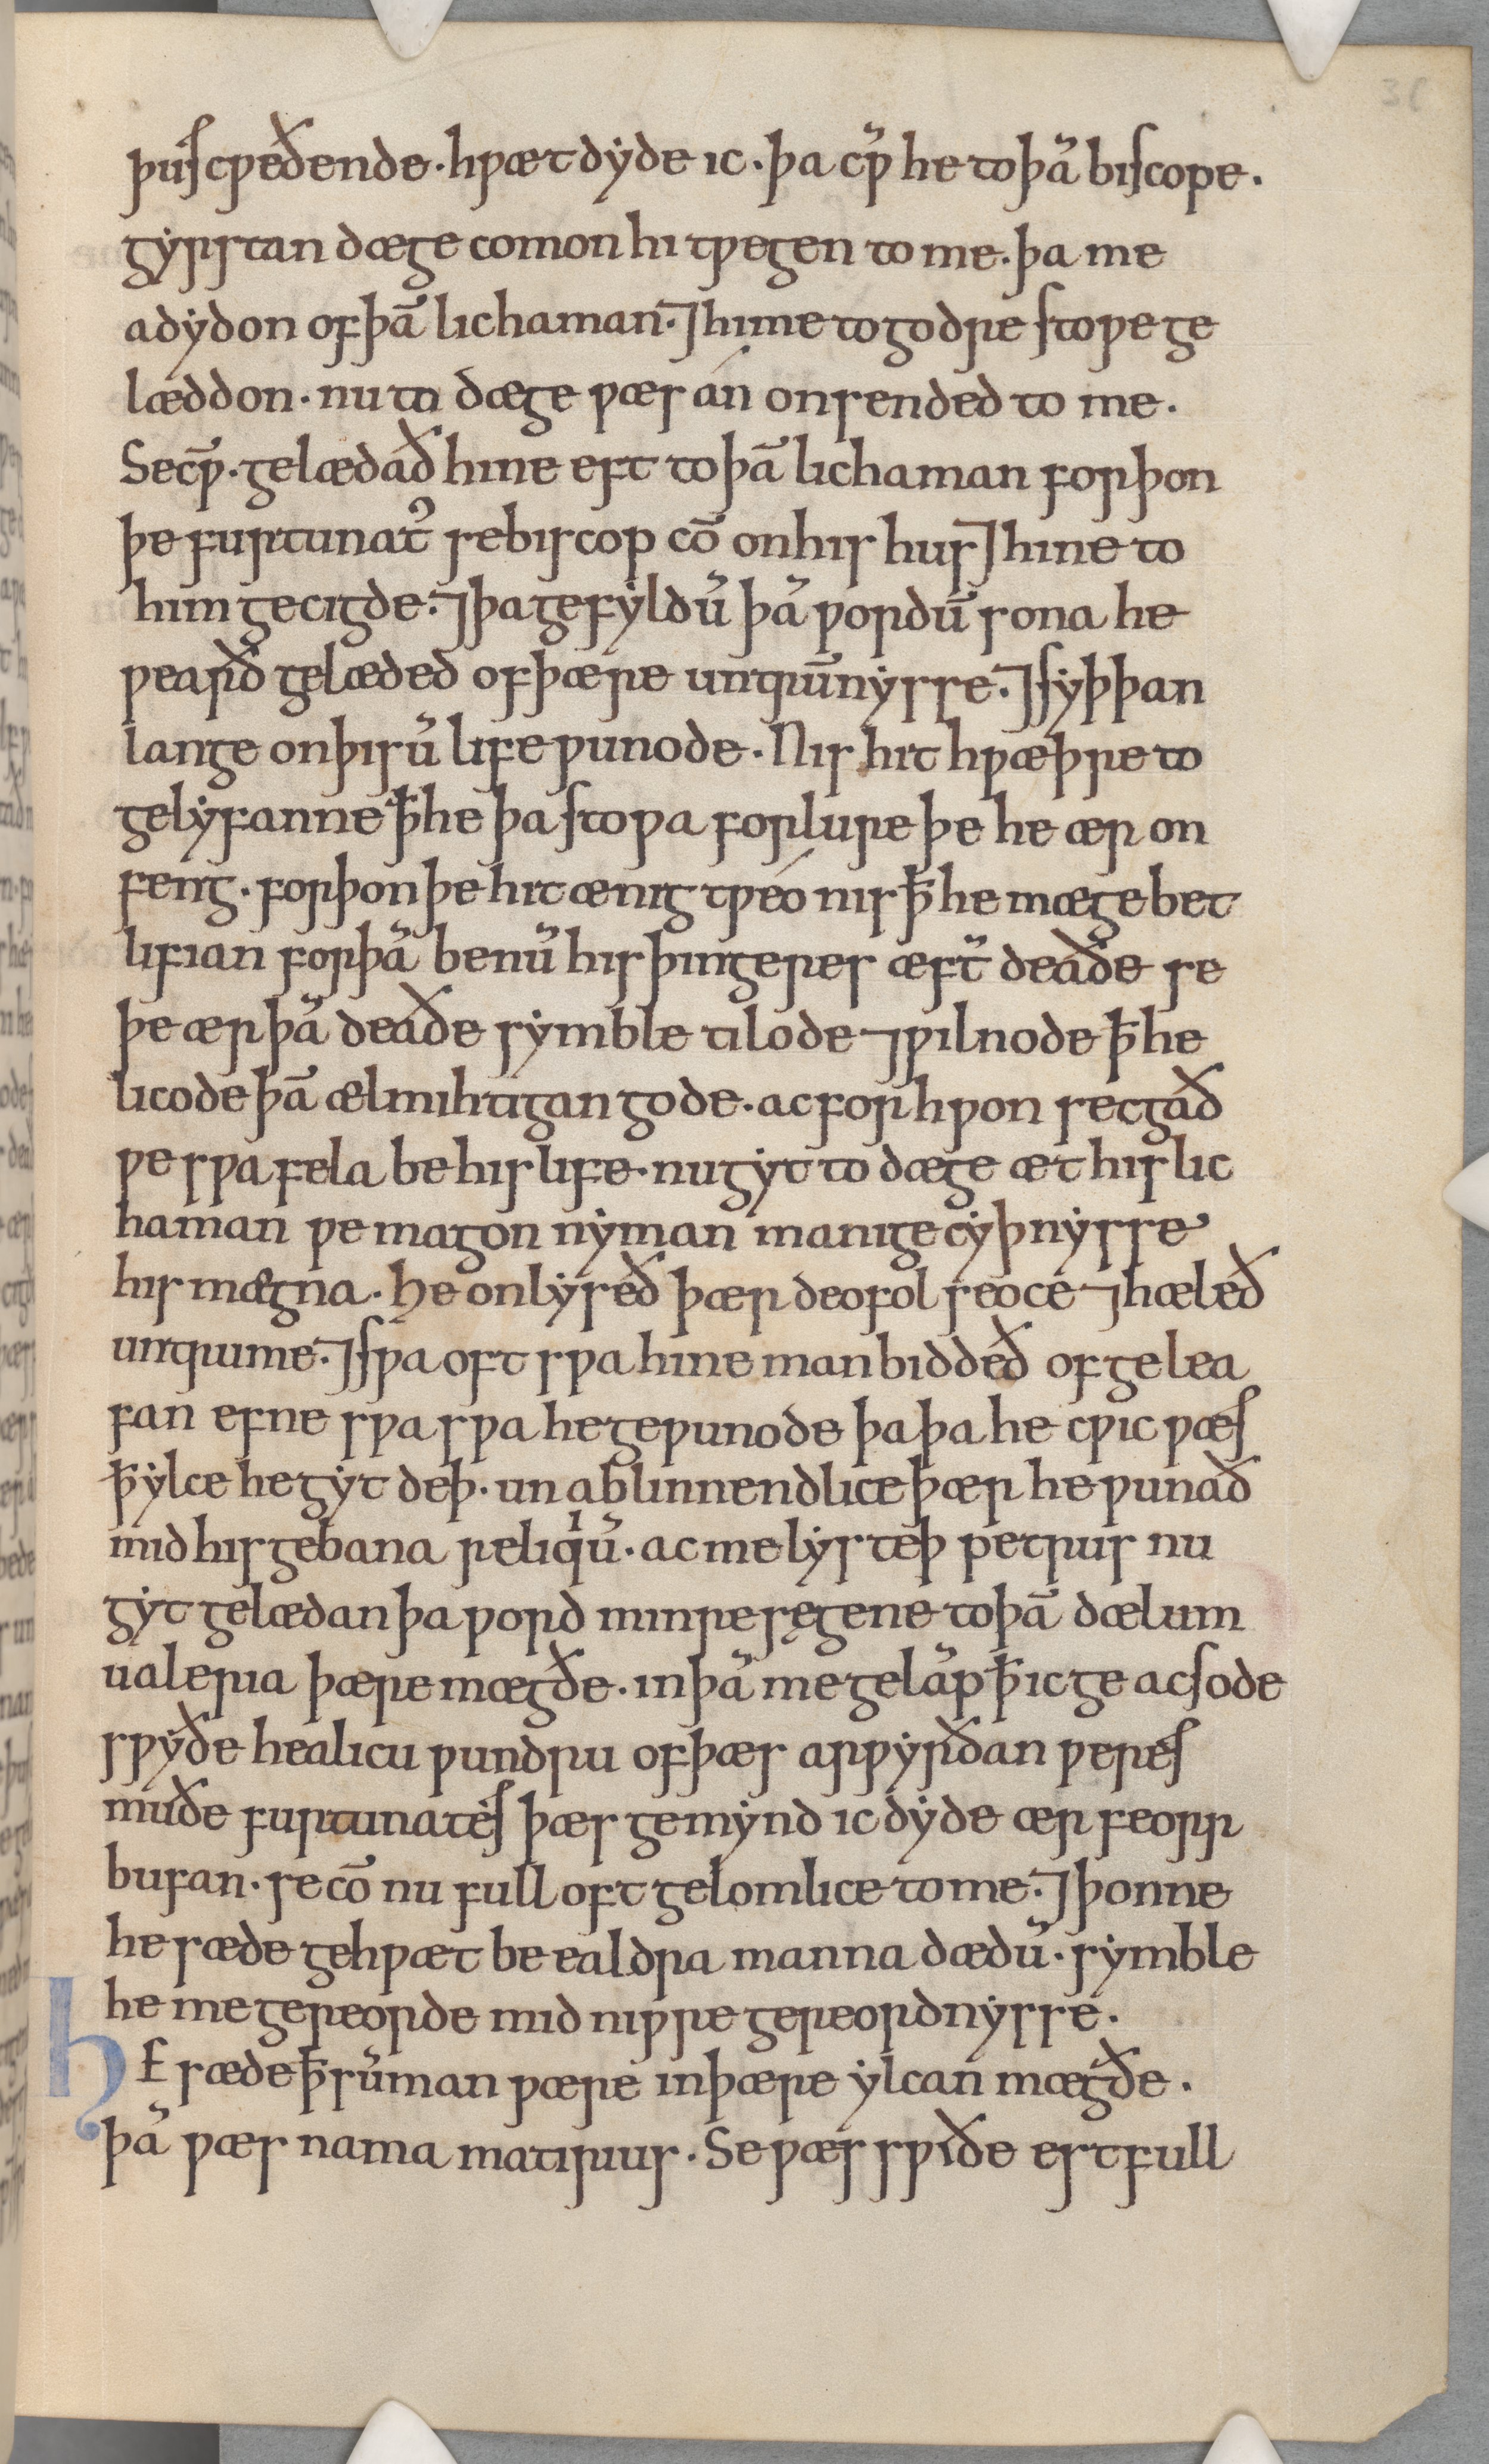 þus cƿeðende · hƿæt dyde ic · þa cƿ̄ he to þā biscope ·
gyrstan dæge comon hi tƿegen to me · þa me
adydon of þā lichaman · ⁊ hi me to godre stoƿe ge
læddon · nu to dæge ƿæs án onsended to me ·
Se cƿ̄ · gelædað hine eft to þā lichaman forþon
þe furtunatꝰ se biscop cō on his hus ⁊ hine to
him gecigde · ⁊ þa gefyldū þā ƿordū sona he
ƿearð gelæded of þære untrūnysse · ⁊ syþþan
lange on þisū life ƿunode · Nis hit hƿæþre to
gelyfanne ꝥ he þa stoƿa forlure þe he ær on
feng · forþon þe hit ænig tƿeó nis ꝥ he mæge bet
lifian for þā benū his þingeres æft̄ deaðe se
þe ær þā deaðe symble tilode ⁊ ƿilnode ꝥ he
licode þā ælmihtigan gode · ac for hƿon secgað
ƿe sƿa fela be his life · nu gyt to dæge æt his lic
haman ƿe magon nyman manige cyþnysse
his mægna · He onlyseð þær deofol seoce ⁊ hæleð
untrume · ⁊ sƿa oft sƿa hine man biddeð of gelea
fan efne sƿa sƿa he geƿunode þa þa he cƿic ƿæs
ꝥ ylce he gyt deþ · unablinnendlice þær he ƿunað
mid his gebana reliqⁱū · ac me lysteþ petrus nu
gyt gelædan þa ƿord minre sęgene to þā dælum
ualeria þære mægðe · in þā me gelāp ꝥ ic geacsode
sƿyðe healicu ƿundru of þæs arƿyrðan ƿeres
muðe furtunates þæs gemynd ic dyde ær feorr
bufan · se cō nu full oft gelomlice to me · ⁊ þonne
he sæde gehƿæt be ealdra manna dædū · symble
he me gereorde mid niƿre gereordnysse ·
hE sæde ꝥ sū man ƿære in þære ylcan mægðe ·
þā ƿæs nama matirius · Se ƿæs sƿiðe estfull